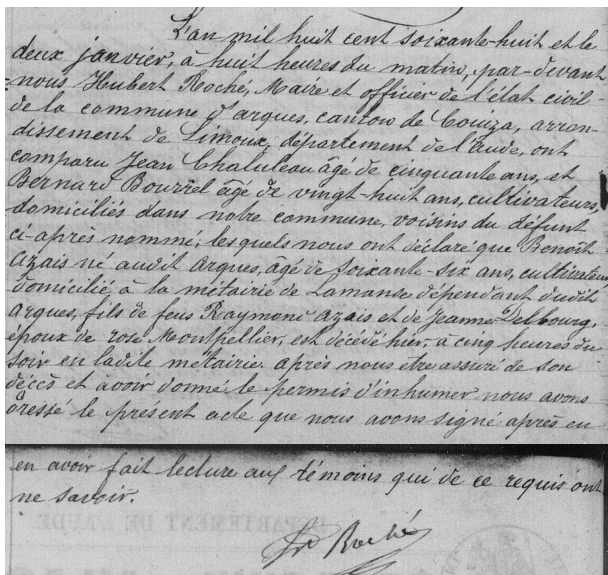 L'an mil huit cent soixante-huit et le
deux janvier, à huit heures du matin, par-devant
nous Hubert Roché, Maire et officier de l'état civil
de la commune d'arques, canton de Couiza, arron
dissement de Limoux, département de l'aude, ont
comparu Jean Chaluleau âgé de cinquante ans, et
Bernard Bourrel âgé de vingt-huit ans, cultivateurs,
domiciliés dans notre commune, voisins du défunt
ci-après nommé, lesquels nous ont déclaré que Benoit
azais né audit arques, âgé de soixante-six ans, cultivateur
domicilié à la métairie de Lamanse dépendant dudit
arques, fils de feus Raymond azais et de Jeanne Delbourg,
époux de rose Montpellier, est décédé hier, à cinq heures du
soir en ladite métairie. après nous etre assuré de son
décès et avoir donné le permis d'inhumer nous avons
dressé le présent acte que nous avons signé après en
en avoir fait lecture aux témoins qui de ce requis ont
ne savoir.
Roché